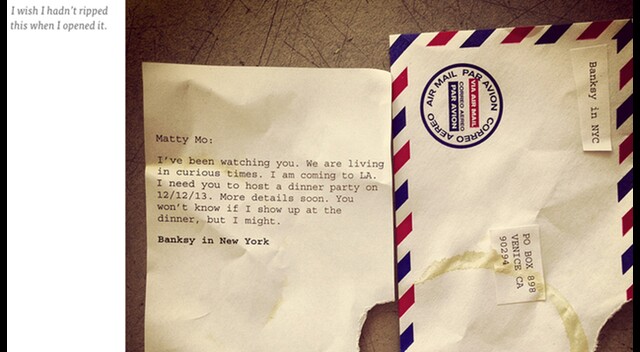 I wish I hadn't ripped
this when I opened it.
Matty Mo:
I've been watching you. We are living
in curious times. I am coming to LA.
I need you to host a dinner party on
12/12/13. More details soon. You
won't know if I show up at the
dinner, but I might.
Banksy in New York
AIR MAIL PAR AVION CORREO AEREO
VIA AIR MAIL
CORREO AEREO
PAR AVION
Banksy in NYC
PO BOX 898
VENICE CA
90294